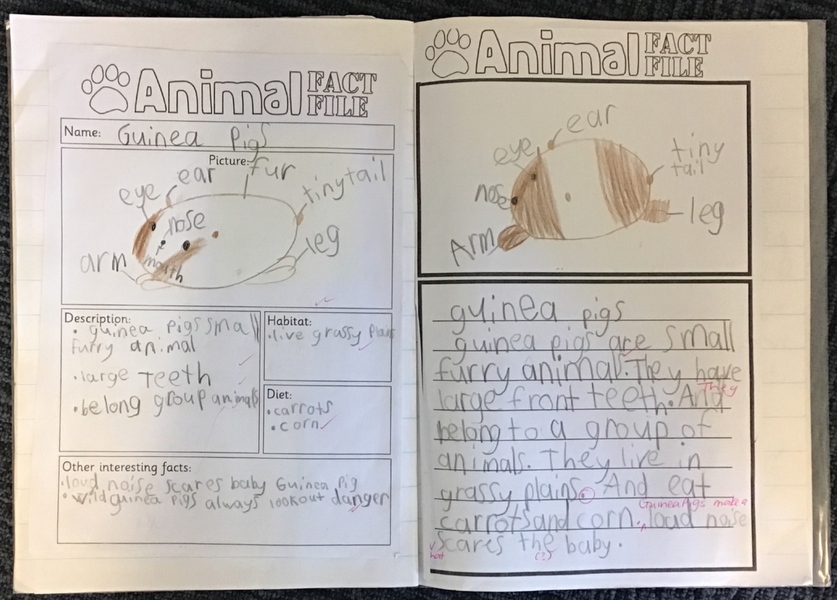 Animal FACT FILE
Name: Guinea pigs
Picture:
fur
ear
eye
tiny tail
nose
mouth
arm
leg
Description:
• guinea pigs small
furry animal
• large teeth
• belong group animals
Habitat:
• live grassy plains
Diet:
• carrots
• corn
Other interesting facts:
• loud noise scares baby Guinea pig
• Wild guinea pigs always lookout danger
Animal FACT FILE
ear
eye
tiny
tail
nose
leg
Arm
guinea pigs
guinea pigs are small
furry animal. They have
They
large front teeth. And
belong to a group of
animals. They live in
grassy plains. And eat
Guinea Pigs make a
carrots and corn. loud noise
scares the baby.
that
(?)